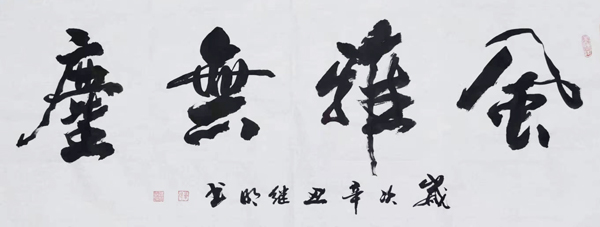 風雅無塵
歲次辛丑继明书